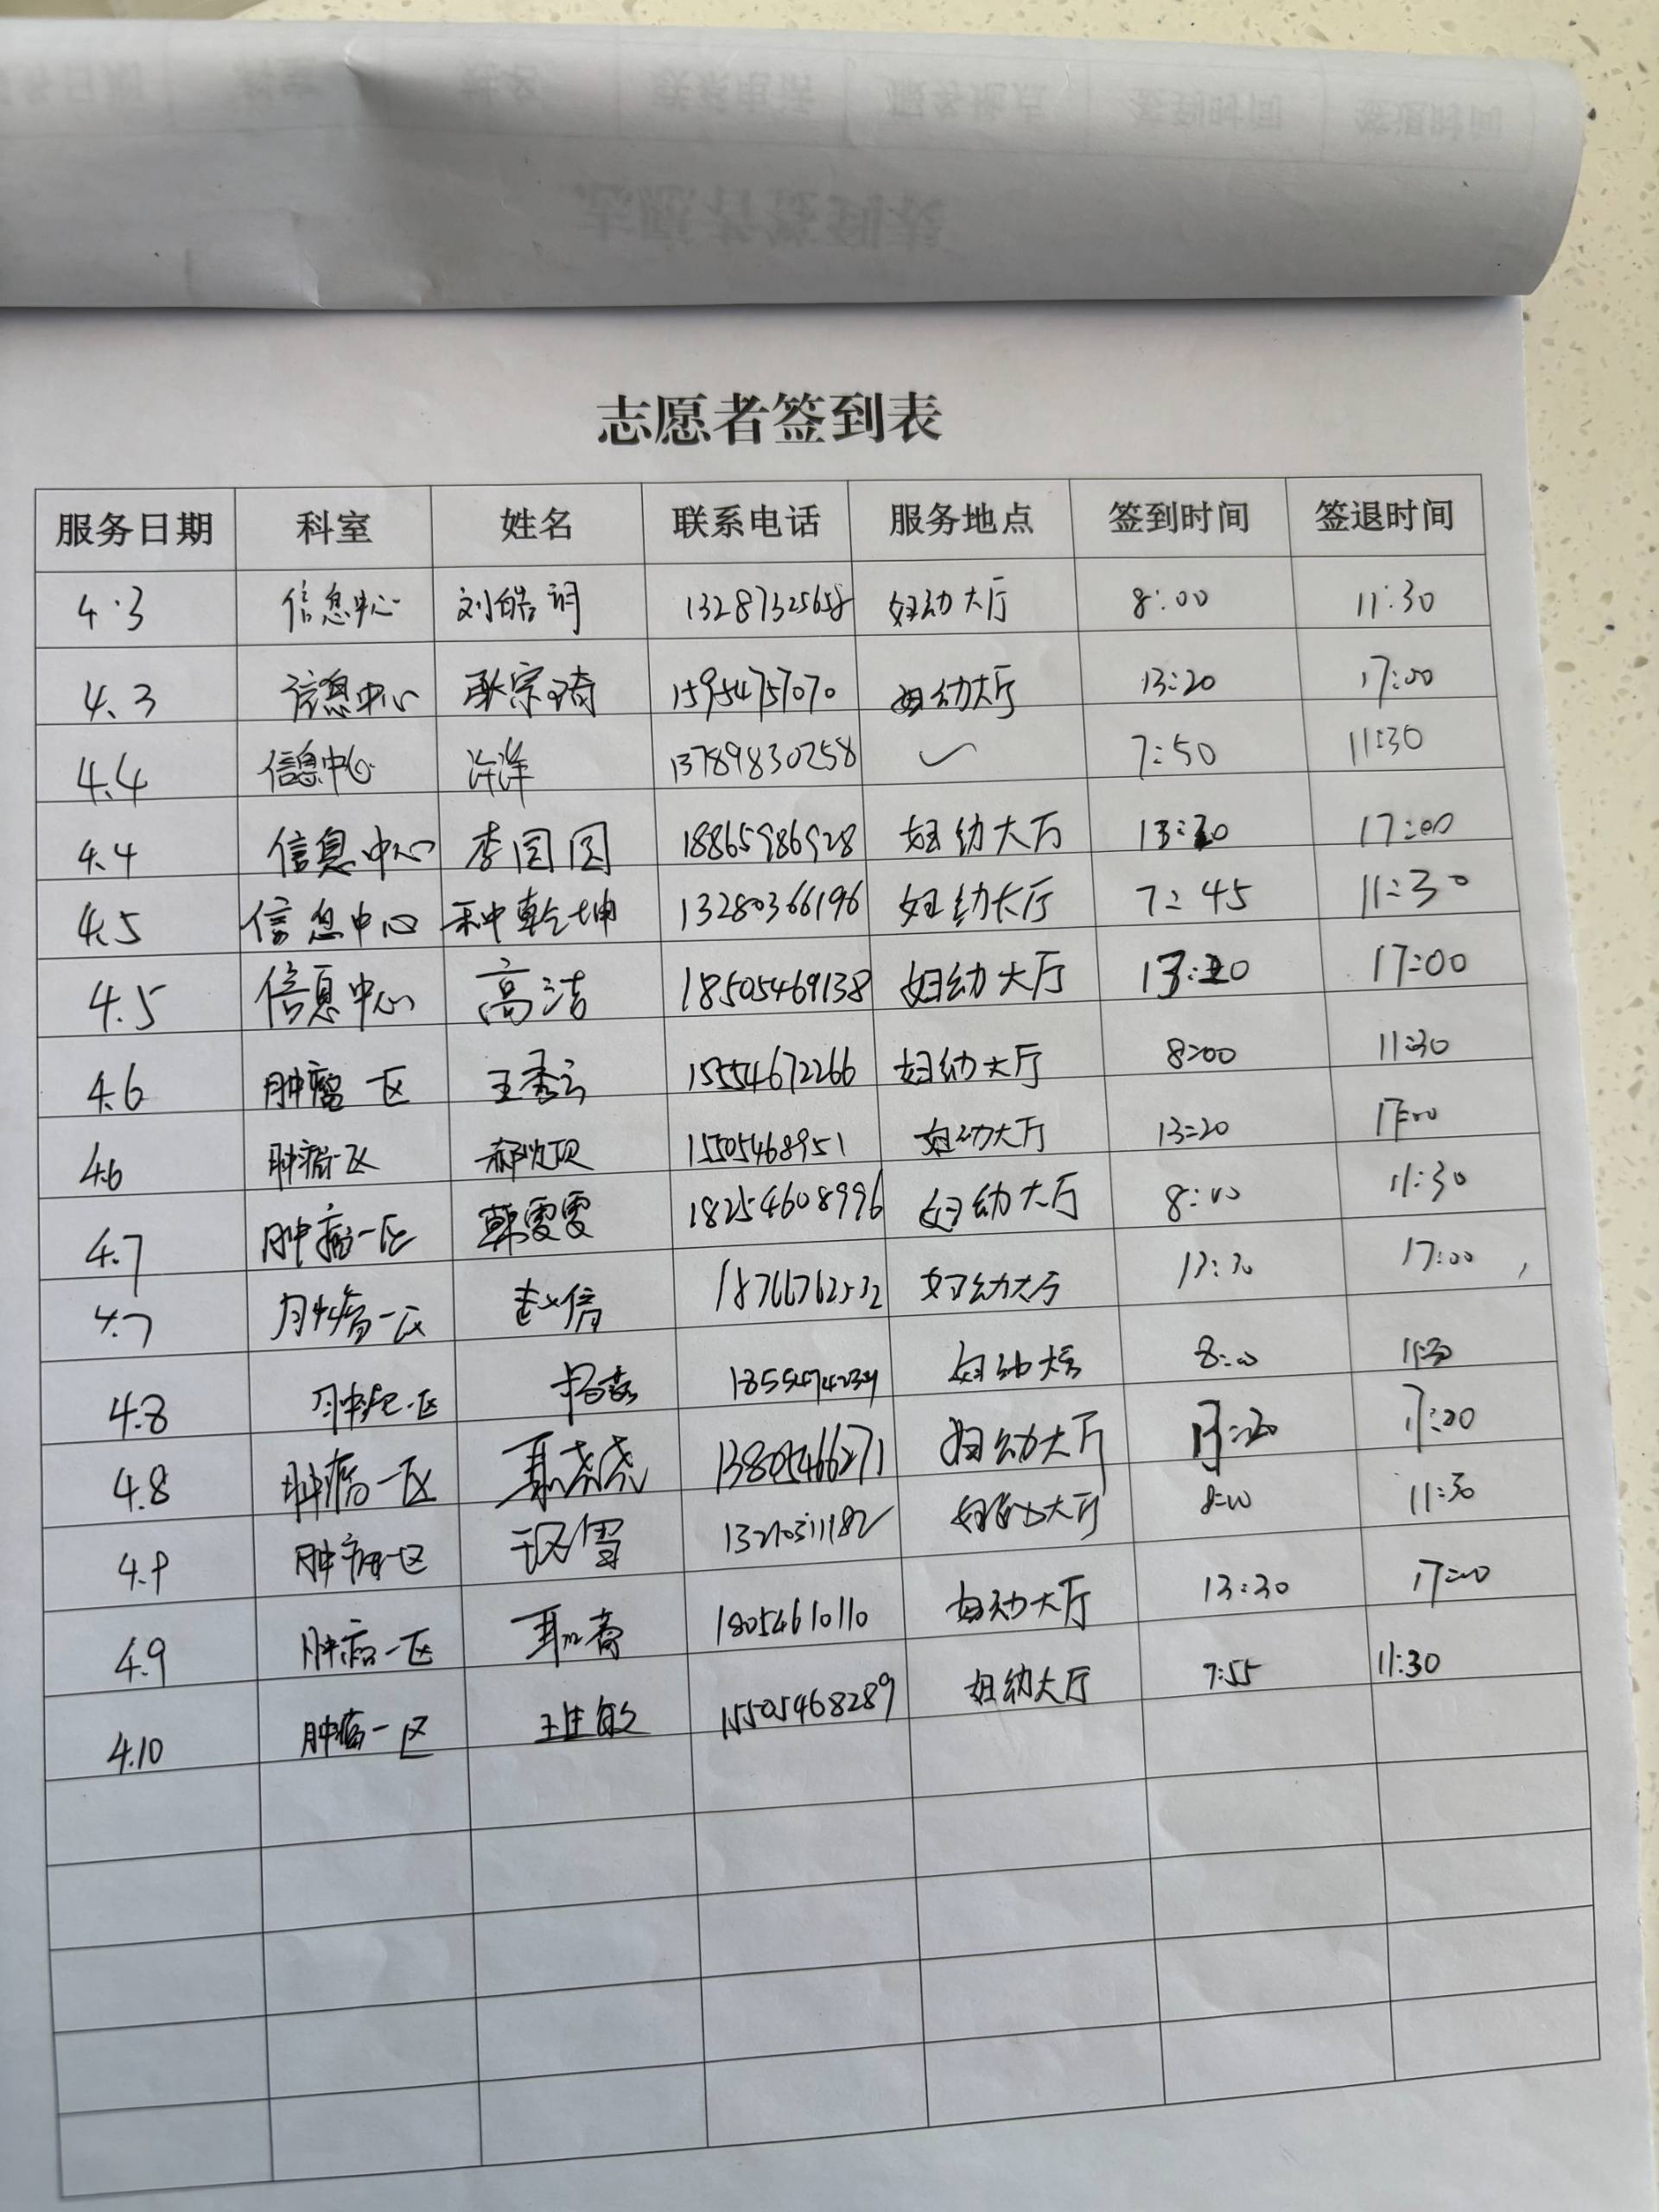 志愿者签到表
服务日期 科室 姓名 联系电话 服务地点 签到时间 签退时间
4.3 信息中心 刘皓词 13287325658 妇幼大厅 8:00 11:30
4.3 信息中心 耿宗琦 15954757070 妇幼大厅 13:20 17:00
4.4 信息中心 许洋 13789830258 ✓ 7:50 11:30
4.4 信息中心 李园园 18865986928 妇幼大厅 13:20 17:00
4.5 信息中心 种乾坤 13280366196 妇幼大厅 7:45 11:30
4.5 信息中心 高洁 18505469138 妇幼大厅 13:20 17:00
4.6 肿瘤一区 王秀云 15554672266 妇幼大厅 8:00 11:30
4.6 肿瘤一区 15505468951 妇幼大厅 13:20 17:00
4.7 肿瘤一区 韩雯雯 18254608996 妇幼大厅 8:00 11:30
4.7 肿瘤一区 赵倩 18766762532 妇幼大厅 13:30 17:00
4.8 肿瘤一区 妇幼大厅 8:00 11:30
4.8 肿瘤一区 聂尧尧 13805466271 妇幼大厅 13:20 17:00
4.9 肿瘤一区 妇幼大厅 8:00 11:30
4.9 肿瘤一区 18054610110 妇幼大厅 13:30 17:00
4.10 肿瘤一区 15505468289 妇幼大厅 7:55 11:30